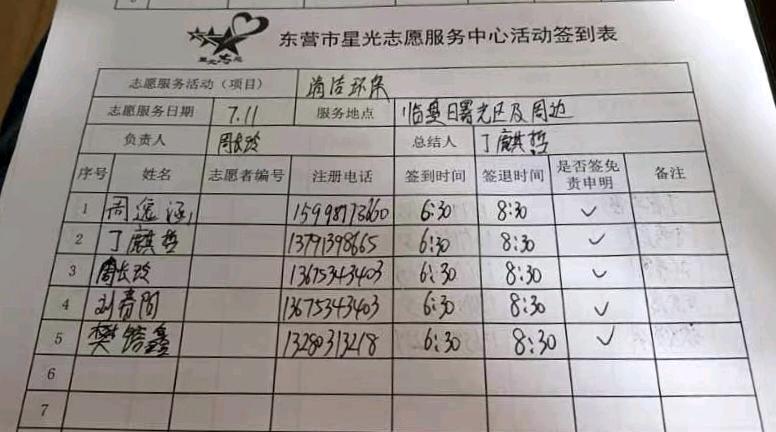 东营市星光志愿服务中心活动签到表
志愿服务活动（项目） 清洁环保
志愿服务日期 7.11 服务地点 临盘日曙光区及周边
负责人 周长玲 总结人 丁麒哲
序号 姓名 志愿者编号 注册电话 签到时间 签退时间 是否签免责申明 备注
1 周 15998773660 6:30 8:30 ✓
2 丁麒哲 13791398665 6:30 8:30 ✓
3 周长玲 13675343403 6:30 8:30 ✓
4 刘春阳 13675343403 6:30 8:30 ✓
5 樊皓鑫 13280313218 6:30 8:30 ✓
6
7